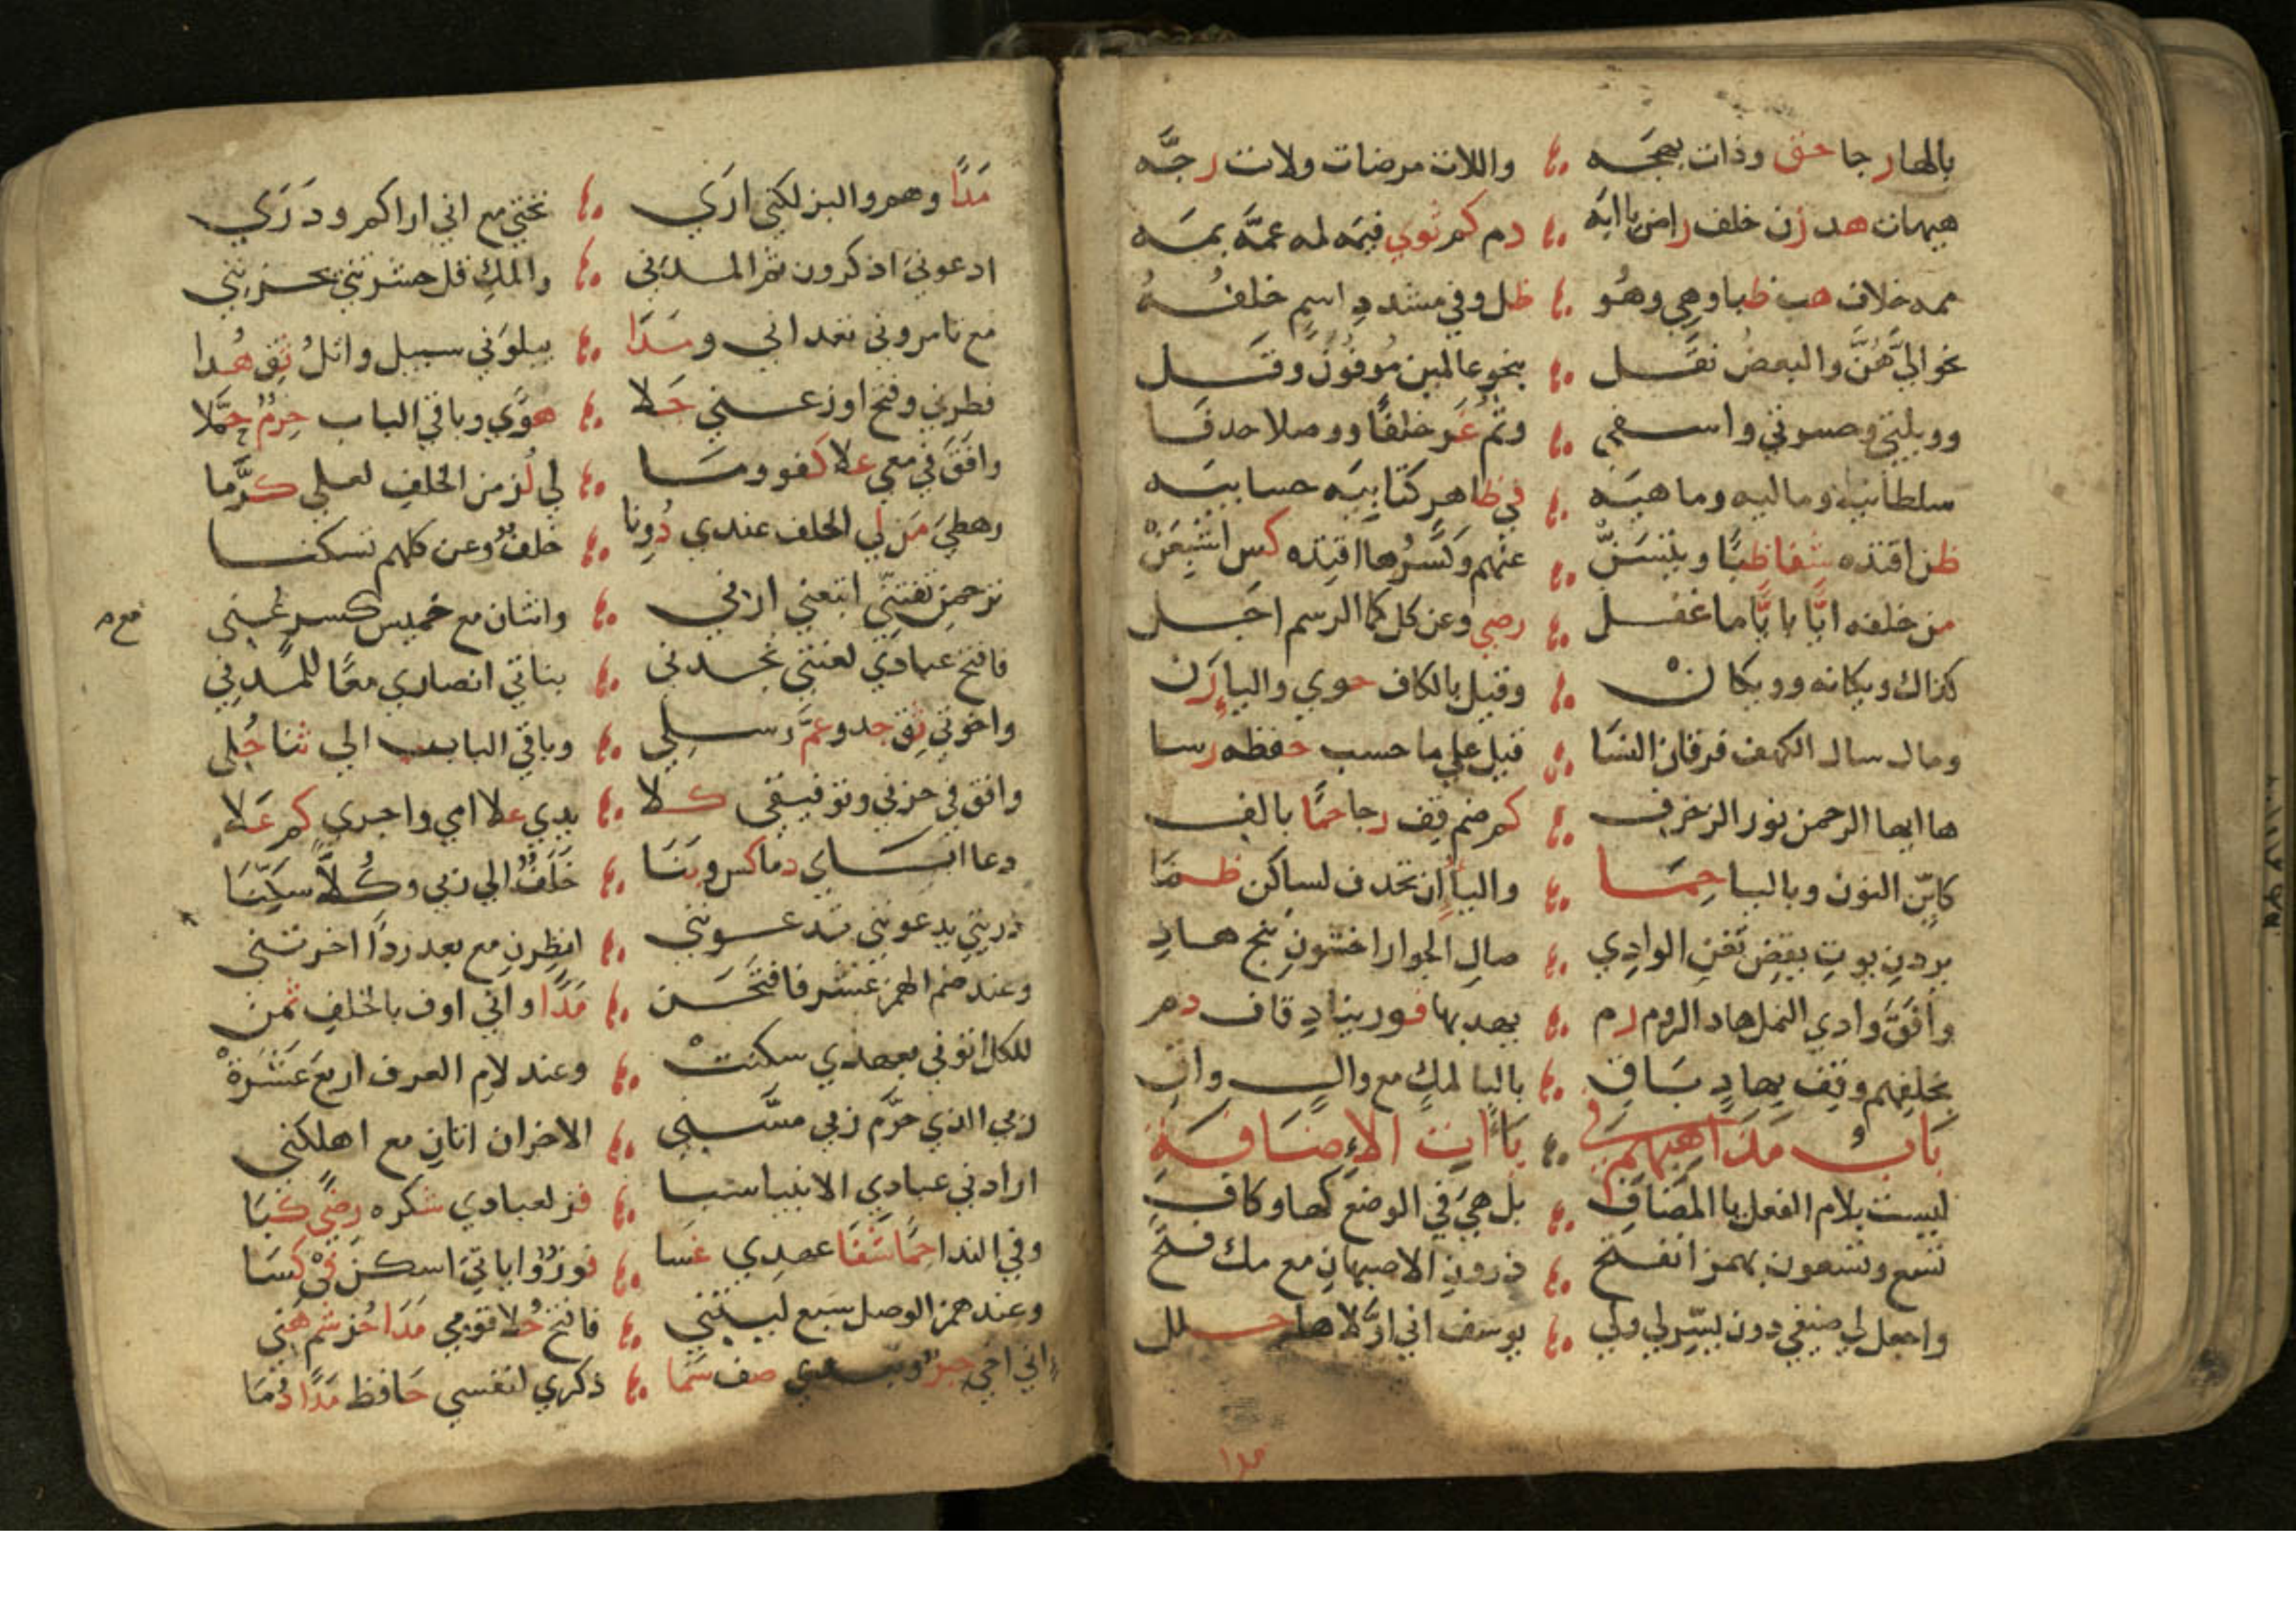 بالها رجا حق وذات بهجه واللات مرضات ولات رجه
هيهات هد زن خلف راض يا ابه دم كم ثوي فيمه لمه عمه بمه
ممه خلاف هب ظبا وهي وهو ظل وفي مشدد اسم خلفه
نحو الي هن والبعض نقل بنحو عالمين موفون وقل
وويلتي وحسرتي واسفي وثم غر خلفا ووصلا حذفا
سلطانيه وماليه وماهيه في ظاهر كتابيه حسابيه
ظن اقتده شفا ظبا ويتسن عنهم وكسر ها اقتده كس اشبعن
من خلفه ايا بايا ما غفل رضي وعن كل كما الرسم اجل
كذاك ويكانه وويكان وقيل بالكاف حوي واليا رن
ومال سال الكهف فرقان النسا قيل علي ما حسب حفظه رسا
ها ايها الرحمن نور الزخرف كم ضم قف رجا حما بالف
كاين النون وباليا حما واليا ان تحذف لساكن ظما
يردن يوت يقض تغن الوادي صال الجوار اخشون ننج هاد
وافق وادي النمل هاد الروم رم يهد بها فوز يناد قاف دم
بخلفهم وقف بهاد باق باليا لمك مع وال واق
باب مذاهبهم في ياات الاضافة
ليست بلام الفعل يا المضاف بل هي في الوضع كها وكاف
تسع وتسعون بهمز انفتح ذرون الاصبهان مع مك فتح
واجعل لي ضيفي دون يسر لي ولي يوسف اني اولاها حلل
مدا
مدا وهم والبز لكني اري تحتي مع اني اراكم ودري
ادعوني اذكرون ثم المدني والمك قل حشرتني يحزنني
مع تامروني تعدانني ومدا يبلوني سبيل واتل ثق هدا
فطرني وفتح اوزعني جلا هوي وباقي الباب حرم حملا
وافق في معي علا كفو وما لي لذ من الخلف لعلي كرما
رهطي من لي الخلف عندي دونا خلف وعن كلهم تسكنا
ترحمن تفتني اتبعني ارني واثنان مع خمسين كسر عني
فافتح عبادي لعنتي تجدني بناتي انصاري معا للمدني
مع م
واخوتي ثق جد وعم رسلي وباقي الباب الي ثنا حلي
وافق في حزني وتوفيقي كلا يدي علا امي واجري كم علا
دعااي ابااي دما كس وبنا خلف الي ربي وكلا سكنا
ذريتي يدعونني تدعونني انظرن مع بعد ردا اخرتني
وعند ضم الهمز عشر فافتحن مدا واني اوف بالخلف ثمن
للكل اتوني بعهدي سكنت وعند لام العرف اربع عشرة
ربي الذي حرم ربي مسني الاخران اتان مع اهلكني
ارادني عبادي الانبيا سبا فز لعبادي شكره رضي كبا
وفي الندا حما شفا عهدي عسا فوز واياتي اسكنن في كسا
وعند همز الوصل سبع ليتني فافتح حلا قومي مدا حز شم هني
اني اخي حبر وبعدي صف سما ذكري لنفسي حافظ مدا دما